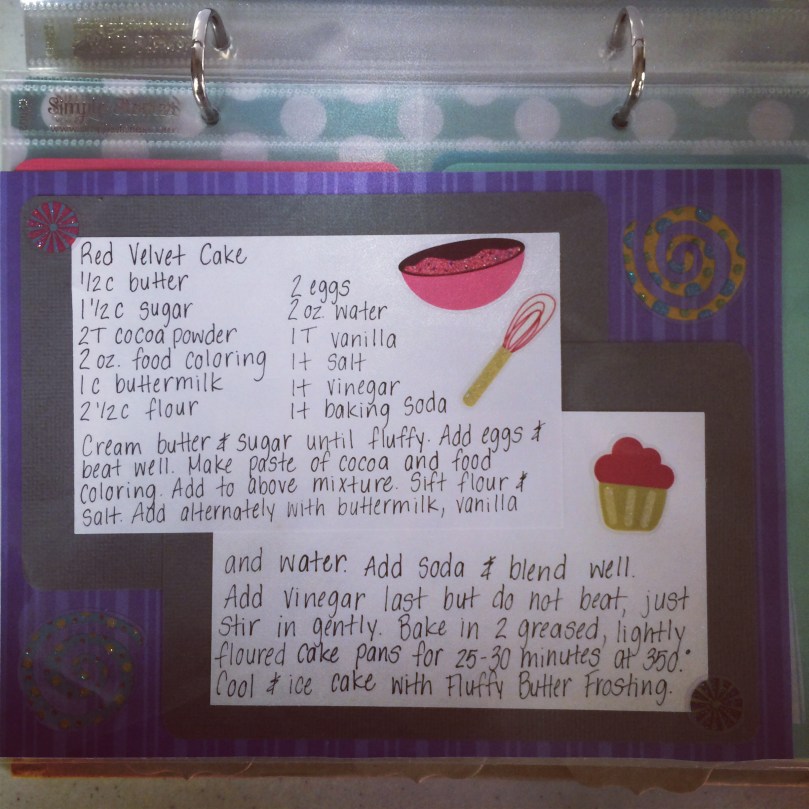 Simple Stories
Red Velvet Cake
1/2 c butter
1 1/2 c sugar
2T cocoa powder
2 oz. food coloring
1 c buttermilk
2 1/2 c flour
2 eggs
2 oz. water
1T vanilla
1t salt
1t vinegar
1t baking soda
Cream butter & sugar until fluffy. Add eggs &
beat well. Make paste of cocoa and food
coloring. Add to above mixture. Sift flour &
salt. Add alternately with buttermilk, vanilla
and water. Add soda & blend well.
Add vinegar last but do not beat, just
stir in gently. Bake in 2 greased, lightly
floured cake pans for 25-30 minutes at 350.°
Cool & ice cake with Fluffy Butter Frosting.